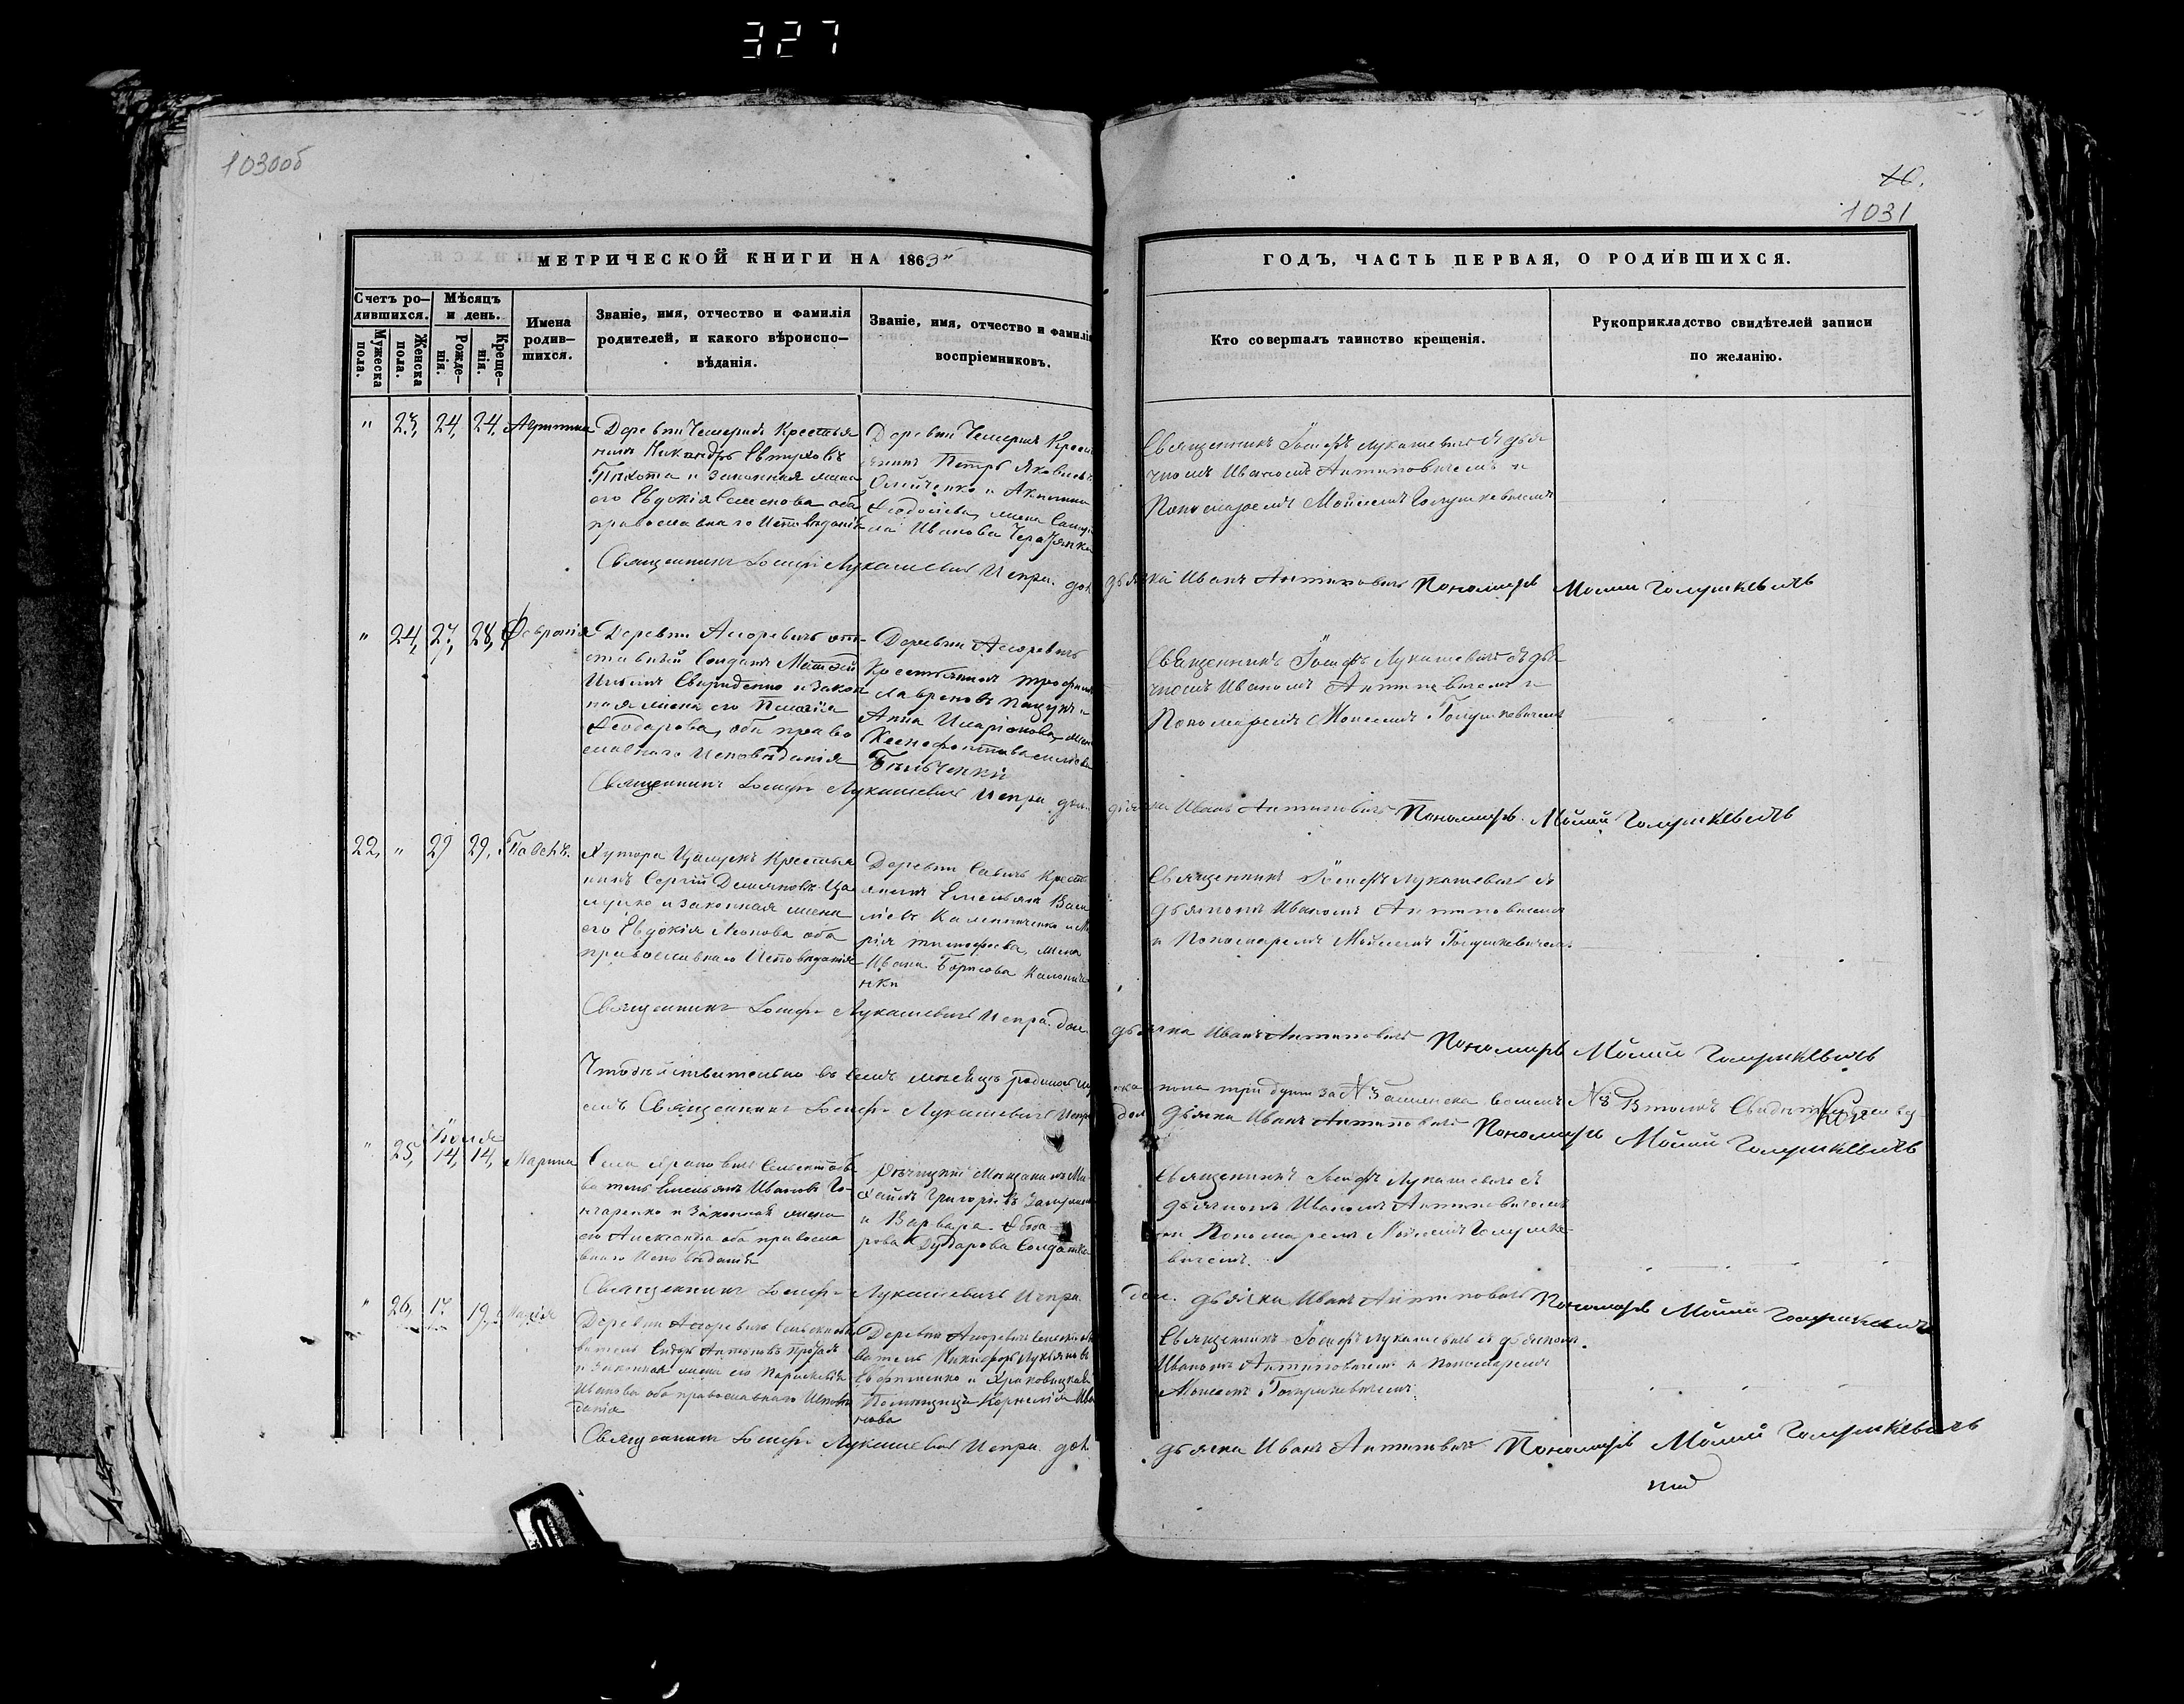 327
1030об
10.
1031
МЕТРИЧЕСКОЙ КНИГИ НА 1863
ГОДЪ, ЧАСТЬ ПЕРВАЯ, О РОДИВШИХСЯ.
Счетъ родившихся.
Мужеска пола.
Женска пола.
Мѣсяцъ и день.
Рожденія.
Крещенія.
Имена родившихся.
Званіе, имя, отчество и фамилія
родителей, и какого вѣроиспо-
вѣданія.
Званіе, имя, отчество и фамилія
воспріемниковъ.
Кто совершалъ таинство крещенія.
Рукоприкладство свидѣтелей записи
по желанію.
" 23, 24, 24,
Деревни Чемеризъ Крестья
нинъ Никандръ Евтуховъ
и законная жена
его Евдокія Семенова оба
православнаго Исповѣданія
Деревни Чемеризъ Крест
янинъ Петръ Яковлевъ
и Акилина
Феодосіева, жена
Иванова
Священникъ Іосифъ Лукашевичъ съ дья
чкомъ Иваномъ Антиповичемъ и
Пономаремъ Мойсеемъ Голушкевичемъ
Священникъ Іосифъ Лукашевичъ Испра. дол. дьячка Иванъ Антиповичъ Пономарь Мойсей Голушкевичъ
" 24, 27, 28, Февронія
Деревни от-
ставный Солдатъ Матвѣй
Свириденко и закон
ная жена его Пелагія
Феодорова, оба право
славнаго Исповѣданія
Деревни
Крестьянинъ Трофимъ
Лавреновъ Пацукъ и
Анна Иларіонова, жена
Ксенофонта Василіева
Священникъ Іосифъ Лукашевичъ съ дья
чкомъ Иваномъ Антиповичемъ и
Пономаремъ Мойсеемъ Голушкевичемъ
Священникъ Іосифъ Лукашевичъ Испра. дол. дьячка Иванъ Антиповичъ Пономарь Мойсей Голушкевичъ
22, " 29 29, Павелъ.
Хутора Крестья
нинъ Сергій Демяновъ Ца
луйко и законная жена
его Евдокія Леонова оба
православнаго Исповѣданія
Деревни Савичъ Кресть
янинъ Емельянъ Васи
ліевъ и Ма
рія Тимофеева, жена
Ивана Борисова
нки
Священникъ Іосифъ Лукашевичъ съ
дьячкомъ Иваномъ Антиповичемъ
и Пономаремъ Мойсеемъ Голушкевичемъ.
Священникъ Іосифъ Лукашевичъ Испра. дол. дьячка Иванъ Антиповичъ Пономарь Мойсей Голушкевичъ
Что дѣйствительно въ семъ мѣсяцѣ родилось пола три души за № 3 а женска восемь № 8 В томъ
емъ Священникъ Іосифъ Лукашевичъ Испра. дол. дьячка Иванъ Антиповичъ Пономарь Мойсей Голушкевичъ
Іюля
" 25, 14, 14, Марина
Села
ватель Емельянъ Ивановъ Го-
нчаренко и Законная жена
его Александра оба правосла
внаго Исповѣданія
Рѣчицкій Мѣщанинъ Ми
хаилъ Григоріевъ
и Варвара Феодо
рова Дударова Солдатка
Священникъ Іосифъ Лукашевичъ съ
дьячкомъ Иваномъ Антиповичемъ
и Пономаремъ Мойсеемъ Голушке
вичемъ.
Священникъ Іосифъ Лукашевичъ Испра. дол. дьячка Иванъ Антиповичъ Пономарь Мойсей Голушкевичъ
" 26, 17, 19,
Деревни
ватель Сидоръ Антоновъ
и Законная жена его Параскевія
Иванова оба православнаго Исповѣ
данія
Деревни
ватель Никифоръ Лукьяновъ
Ефименко и
Помѣщица Корнелія Ива
нова
Священникъ Іосифъ Лукашевичъ съ дьячкомъ
Иваномъ Антиповичемъ и Пономаремъ
Мойсеемъ Голушкевичемъ.
Священникъ Іосифъ Лукашевичъ Испра. дол. дьячка Иванъ Антиповичъ Пономарь Мойсей Голушкевичъ